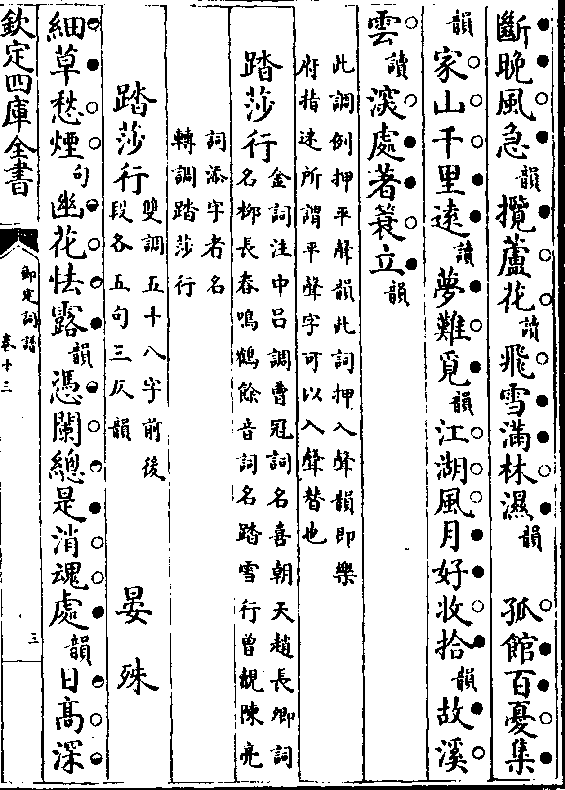 斷晚風急韻攬蘆花讀飛雪滿林濕韻　孤館百憂集
韻家山千里遠讀夢難覓韻江湖風月好收拾韻故溪
雲讀深處著蓑立韻
此調例押平聲韻此詞押入聲韻即樂
府指迷所謂平聲字可以入聲替也
踏莎行
金詞注中呂調曹冠詞名喜朝天趙長卿詞
名柳長春鳴鶴餘音詞名踏雪行曾覿陳亮
詞添字者名
轉調踏莎行
踏莎行
雙調五十八字前後
段各五句三仄韻
晏殊
細草愁煙句幽花怯露韻憑闌總是消魂處韻日高深
欽定四庫全書
御定詞譜
卷十三
三